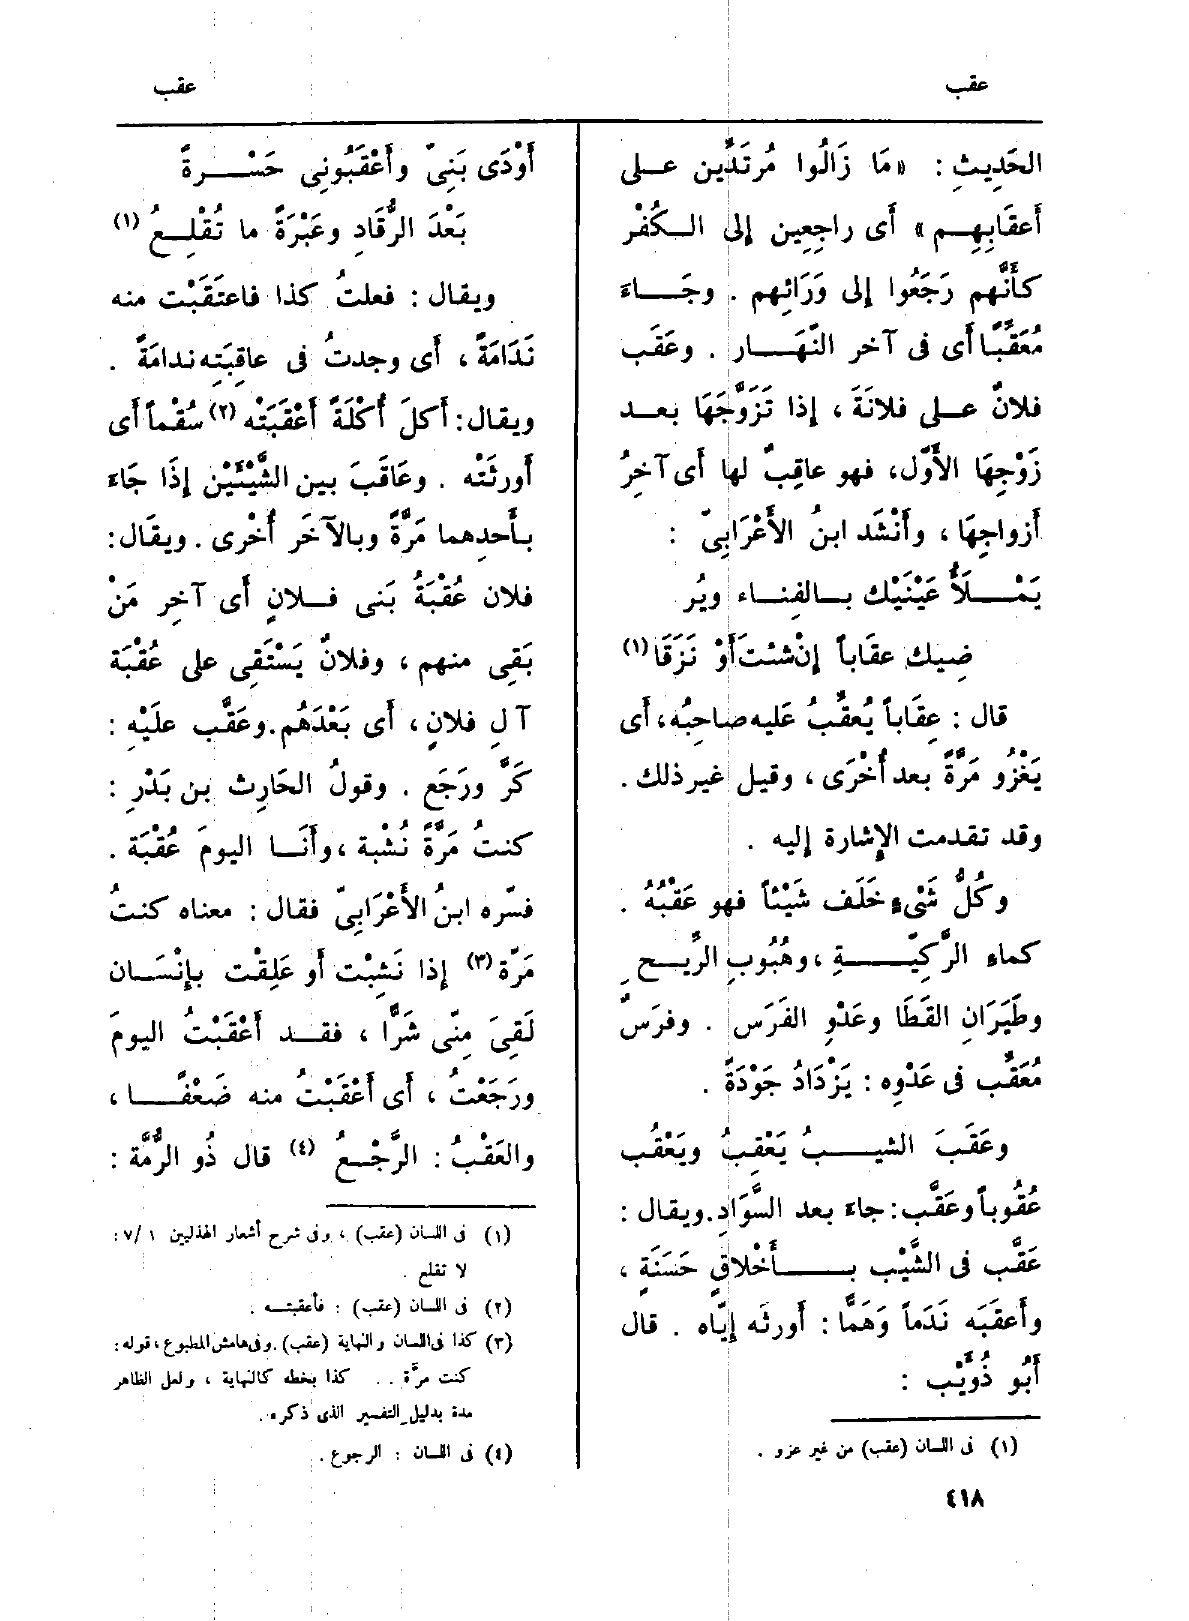 عقب
عقب
الحَدِيثِ : «مَا زَالُوا مُرتَدِّين عـلى
أَعقَابِهِـم» أَى راجِعِين إِلى الـكُفْر
كـأَنَّهم رَجَعُوا إِلى وَرَائِهم . وجَـاءَ
مُعَقِّبًا أَى فى آخر النَّهـار . وعَقَب
فلانٌ عـلى فلانَةَ ، إِذا تَزَوَّجَهَا بعـد
زَوْجِهَا الأَوَّل، فهو عاقِبٌ لها أَى آخِرُ
أَزواجِهَا ، وأَنْشَد ابنُ الأَعْرَابِىّ :
يَمْـلَأُ عَيْنَيْك بـالفِنـاء ويُر
ضِيك عقَاباً إِنْ شئت أَوْ نَزَقَا (١)
قال : عِقَاباً يُعقِّبُ عَليه صاحِبُه، أَى
يَغْزُو مَرَّةً بعد أُخْرَى ، وقيل غير ذلك .
وقد تقدمت الإِشارة إِليه .
وكُلُّ شَىْءٍ خَلَف شَيْئاً فهو عَقْبُهُ .
كماءِ الرَّكِيّـةِ ، وهُبُوبِ الرِّيـحِ
وطَيَرَانِ القَطَا وعَدْوِ الفَرَس . وفرَسٌ
مُعَقِّب فى عَدْوِه : يَزْدَادُ جَوْدَةً .
وعَقَبَ الشيـبُ يَعْقِبُ ويَعْقُب
عُقُوباً وعَقَّب : جاءَ بعد السَّوَادِ. ويقال :
عَقَّب فى الشَّيْب بـأَخْلاقٍ حَسَنَةٍ ،
وأَعقَبَه نَدَماً وَهَمًّا : أَورثَه إِيّاه . قال
أَبُو ذُوَيْب :
(١) فى اللسان (عقب) من غير عزو .
٤١٨
أَوْدَى بَنِىّ وأَعْقَبُونِى حَسْـرةً
بَعْدَ الرُّقَادِ وعَبْرَةً ما تُقْلِـعُ (١)
ويقال : فعلتُ كذا فاعتَقَبْت منه
نَدَامَةً ، أَى وجدتُ فى عاقِبَتِه ندامَةً .
ويقال: أَكلَ أُكْلَةً أَعْقَبَتْه (٢) سُقْماً أَى
أَورثَتْه . وعَاقَبَ بين الشَّيْئَيْن إِذَا جَاءَ
بـأَحدِهما مَرَّةً وبالآخَر أُخْرى . ويقَال:
فلان عُقْبَةُ بَنى فـلانٍ أَى آخِر مَنْ
بَقِى منهم ، وفلانٌ يَسْتَقِى على عُقْبَة
آلِ فلانٍ ، أَى بَعْدَهُم. وعَقَّب علَيْهِ :
كَرَّ ورَجَع . وقولُ الحَارِث بن بَدْرٍ :
كنتُ مَرَّةً نُشْبة ، وأَنَـا اليومَ عُقْبَة .
فسّره ابنُ الأَعْرَابِىّ فقال : معناه كنتُ
مَرّة (٣) إِذا نَشِبْت أَو عَلِقْت بـإِنْسَـان
لَقِىَ مِنِّى شَرًّا ، فقـد أَعْقَبْتُ اليومَ
ورَجَعْتُ ، أَى أَعْقَبْتُ منه ضَعْفًـا ،
والعَقْبُ : الرَّجْـعُ (٤) قال ذُو الرُّمَّة :
(١) فى اللسان (عقب) ، وفى شرح أشعار الهذليين ١ /٧ :
لا تقلع .
(٢) فى اللسان (عقب) : فأعقبتـه .
(٣) كذا فى اللسان والنهاية (عقب). وفى هامش المطبوع ، قوله :
كنت مرَّة . . كذا بخطه كالنهاية ، ولعل الظاهر
مدة بدليل التفسير الذى ذكره .
(٤) فى اللسان : الرجوع .